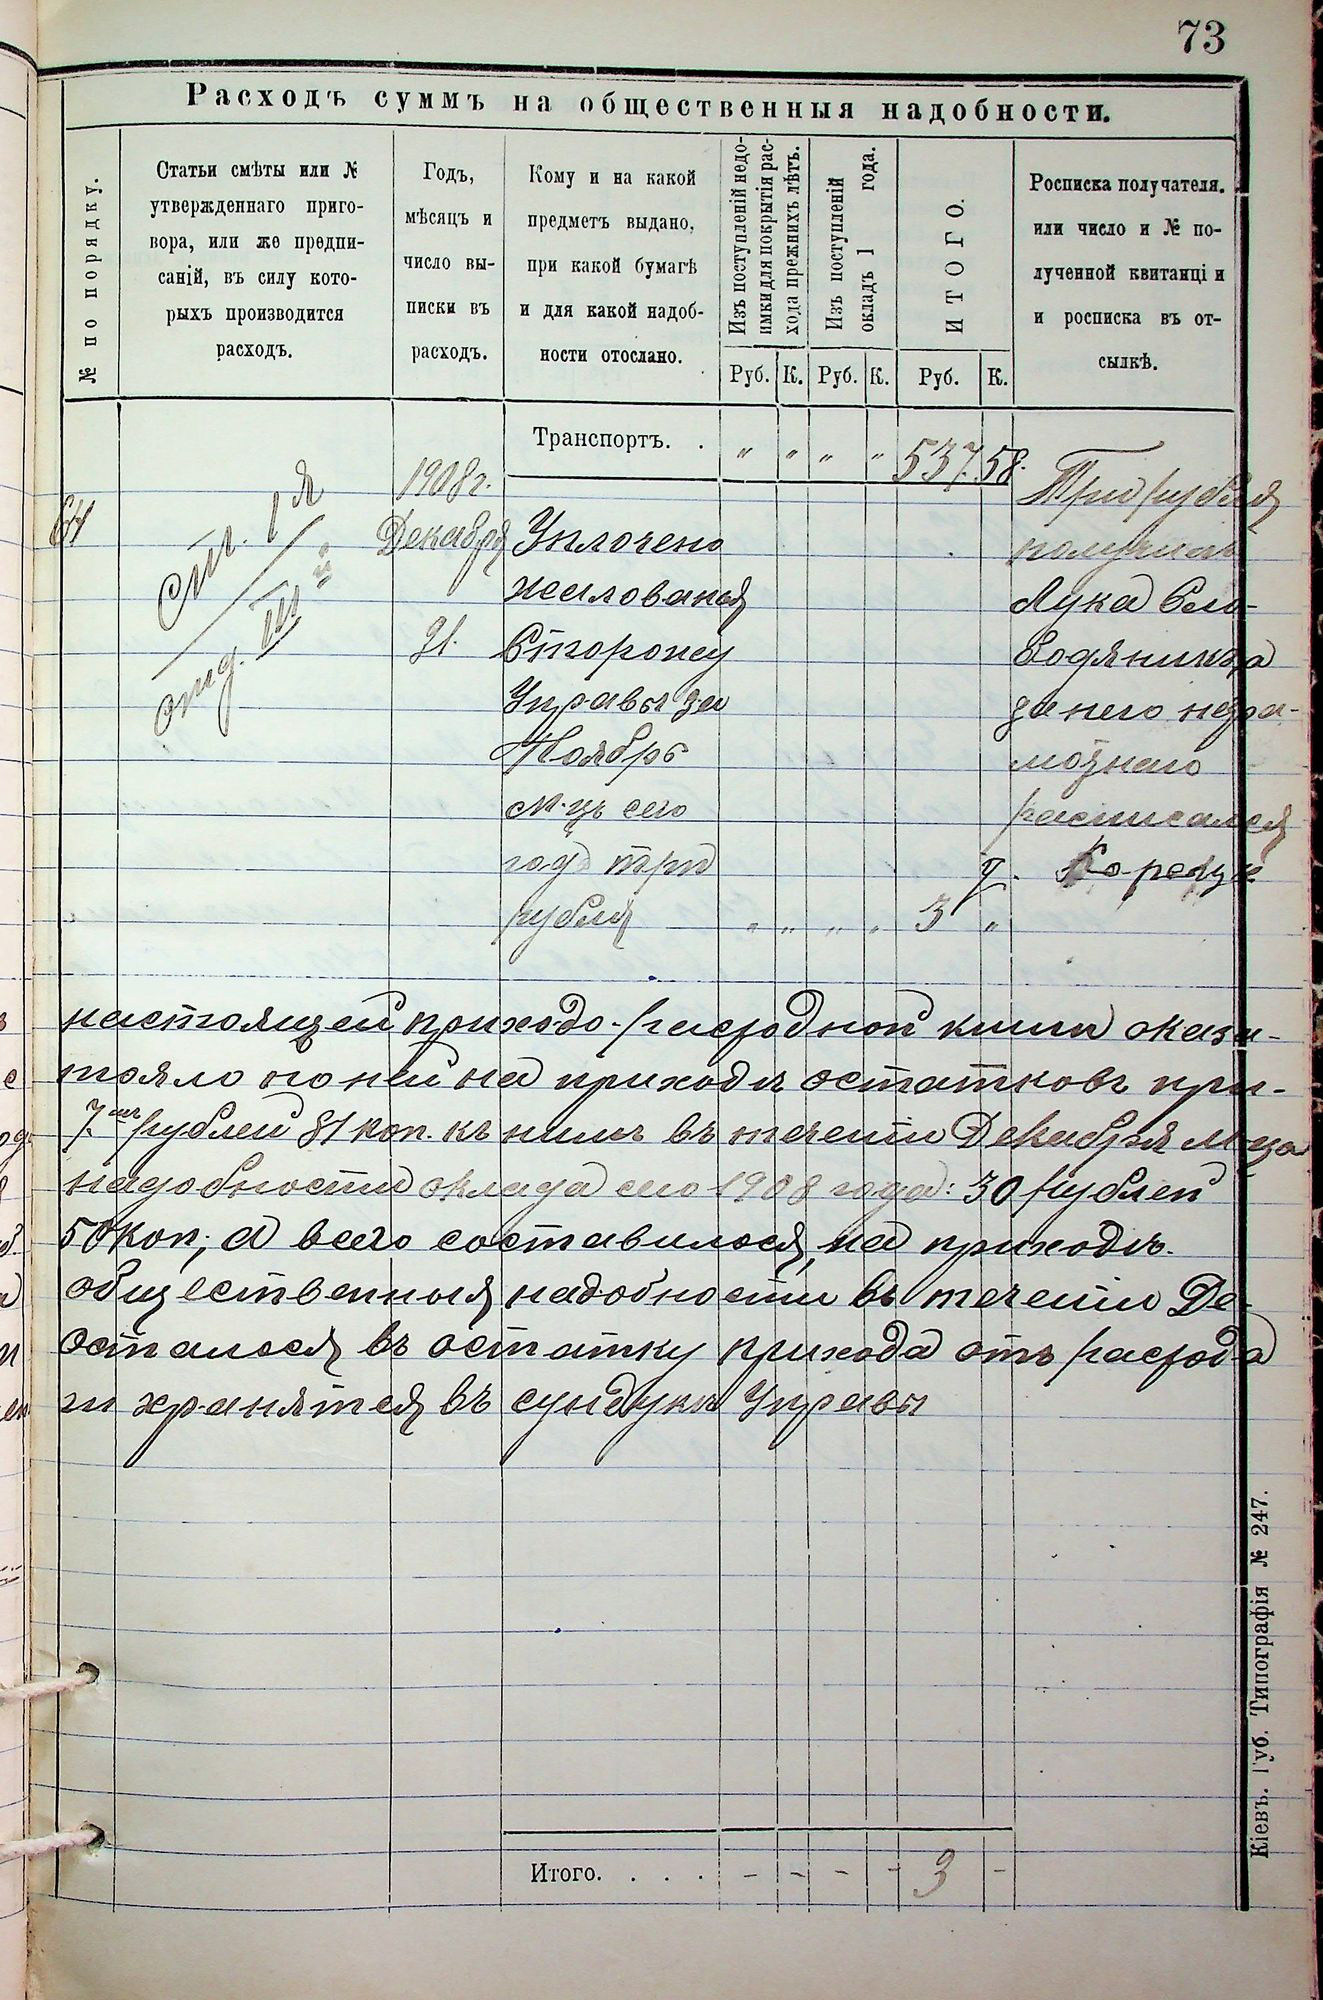 73
Расходъ суммъ на общественныя надобности.
№ по порядку.
Статьи смѣты или №
утвержденнаго приго-
вора, или же предпи-
саній, въ силу кото-
рыхъ производится
расходъ.
Годъ,
мѣсяцъ и
число вы-
писки въ
расходъ.
Кому и на какой
предметъ выдано,
при какой бумагѣ
и для какой надоб-
ности отослано.
Изъ поступленій недо-
имки для покрытія рас-
хода прежнихъ лѣтъ.
Изъ поступленій
окладъ 1 года.
ИТОГО.
Росписка получателя.
или число и № по-
лученной квитанці и
и росписка въ от-
сылкѣ.
Руб. К. Руб. К. Руб. К.
Транспортъ. . „ „ „ „ 537. 58.
64
Ст. 1я
отд. III
1908 г.
Декабря
21.
Уплочено
жалованья
Сторожу
Управы за
Ноябрь
м-цъ сего
года три
рубля „ „ „ „ 3 „
Три рубля
получилъ
Лука Сло-
водяникъ а
за него негра-
мотнаго
расписался
настоящей приходо-расходной книги оказа-
тояло по ней на приходѣ остатковъ при-
7. рублей 81 коп. къ нимъ въ теченіи Декабря м-ца
надобности оклада сего 1908 года: 30 рублей
50 коп; а всего составилося, на приходъ.
общественныя надобности въ теченіи Де-
осталося въ остатку прихода отъ расхода
и хранятся въ сундукѣ Управы
Итого. . . . - - - - 3 -
Кіевъ. Губ. Типографія № 247.